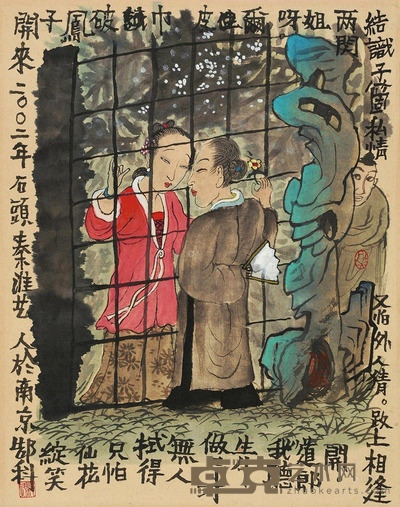 結識子箇私情又怕外人猜。路上相逢
两閃
開
道郎
我
生
做
無人
拭得
只怕
仙花
綻笑
姐呀爾
皮巾
破鳳子
開來 二〇〇二年石頭秦淮艺人於南京郜科